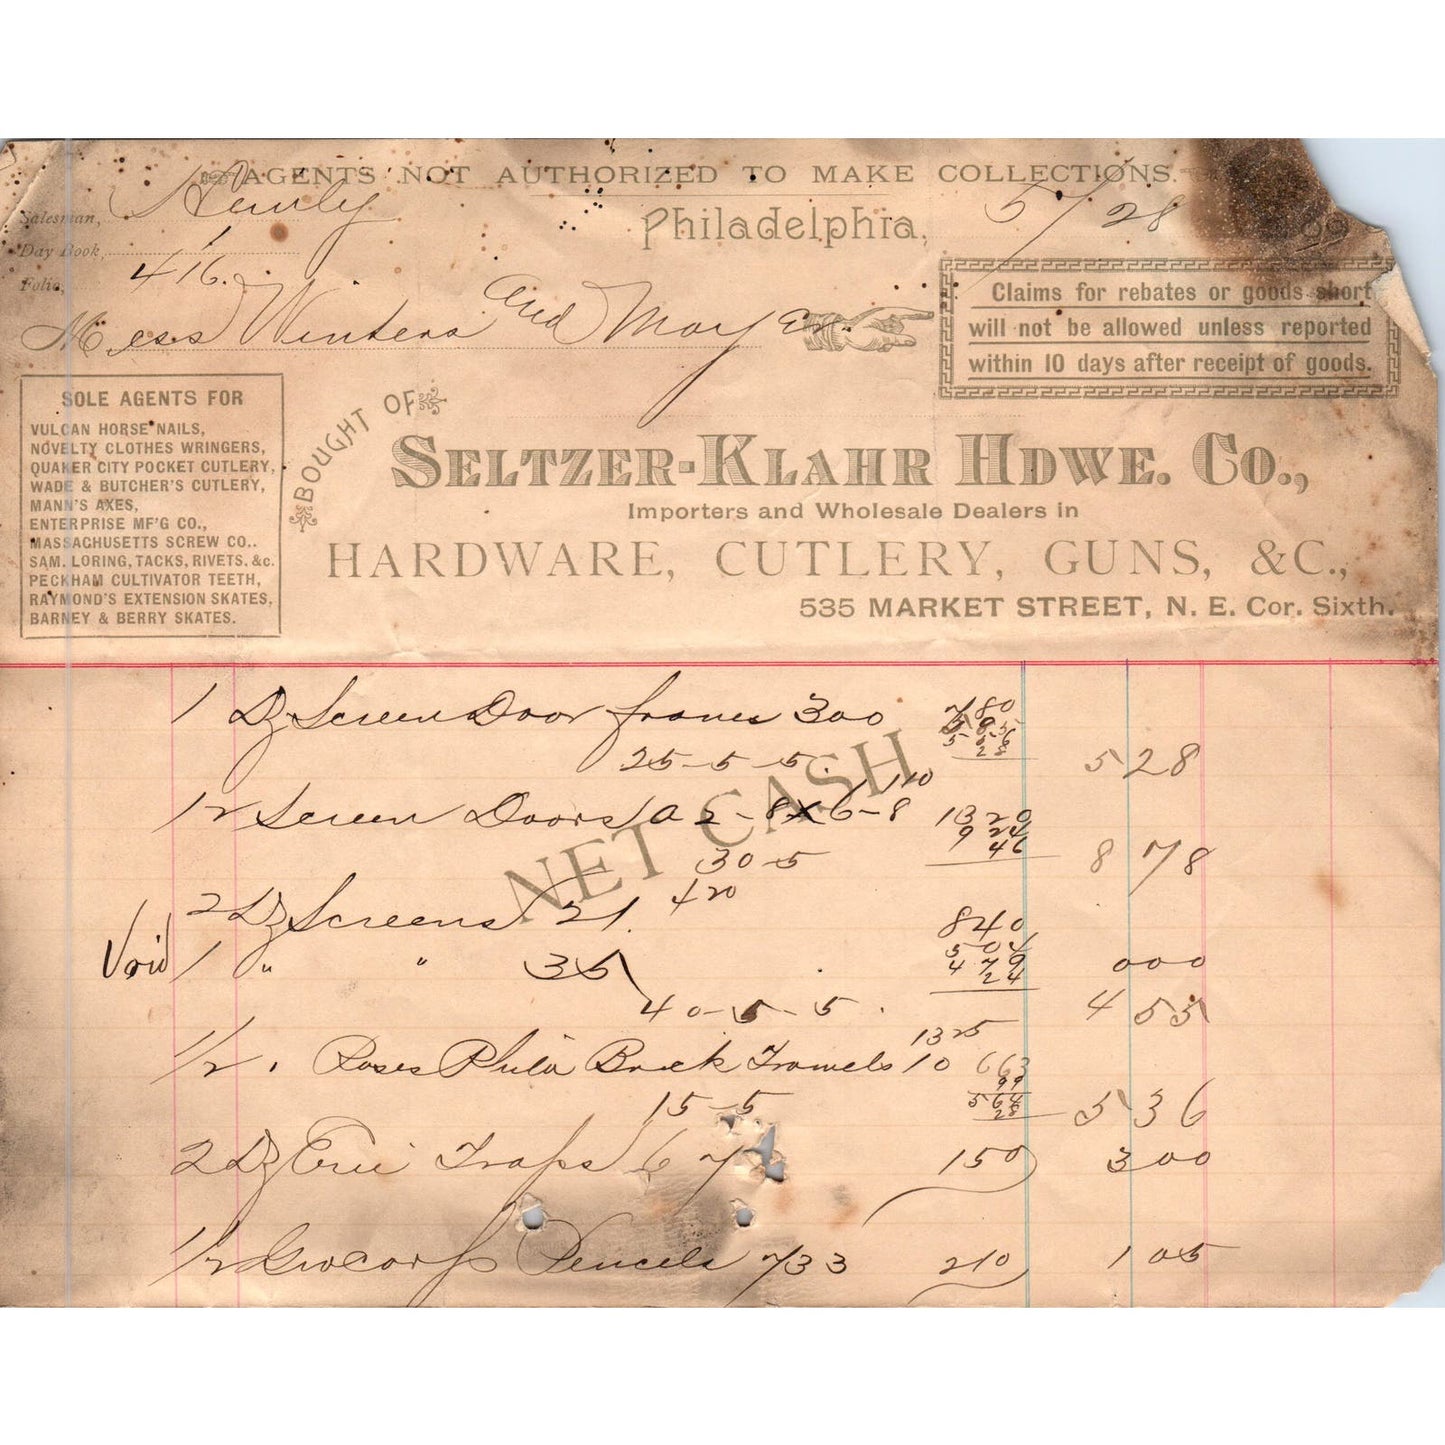 AGENTS NOT AUTHORIZED TO MAKE COLLECTIONS.
Salesman, Henly
Philadelphia, 5/28 99
Day Book,
Folio, 416.
Mess Winters And Moyer
Claims for rebates or goods short
will not be allowed unless reported
within 10 days after receipt of goods.
SOLE AGENTS FOR
VULCAN HORSE NAILS,
NOVELTY CLOTHES WRINGERS,
QUAKER CITY POCKET CUTLERY,
WADE & BUTCHER'S CUTLERY,
MANN'S AXES,
ENTERPRISE MF'G CO.,
MASSACHUSETTS SCREW CO..
SAM. LORING, TACKS, RIVETS, &c.
PECKHAM CULTIVATOR TEETH,
RAYMOND'S EXTENSION SKATES,
BARNEY & BERRY SKATES.
BOUGHT OF
SELTZER-KLAHR HDWE. CO.,
Importers and Wholesale Dealers in
HARDWARE, CUTLERY, GUNS, &C.,
535 MARKET STREET, N. E. Cor. Sixth.
NET CASH.
1 Dz Screen Door frames 300 780
25-5-5. 528
110
12 Screen Doors 2-8x6-8 1320
924
46
30-5 878
420
2 Dz Screens 21. 840
504
Void 1 " " 35 479 000
24
40-5-5. 455
1325
1/2 . Roses Phila Brick Trowels 10 663
99
564
28
15-5 536
2 Dz Erie Traps 67 150 300
1/2 Gro Carp Pencels 733 210 105